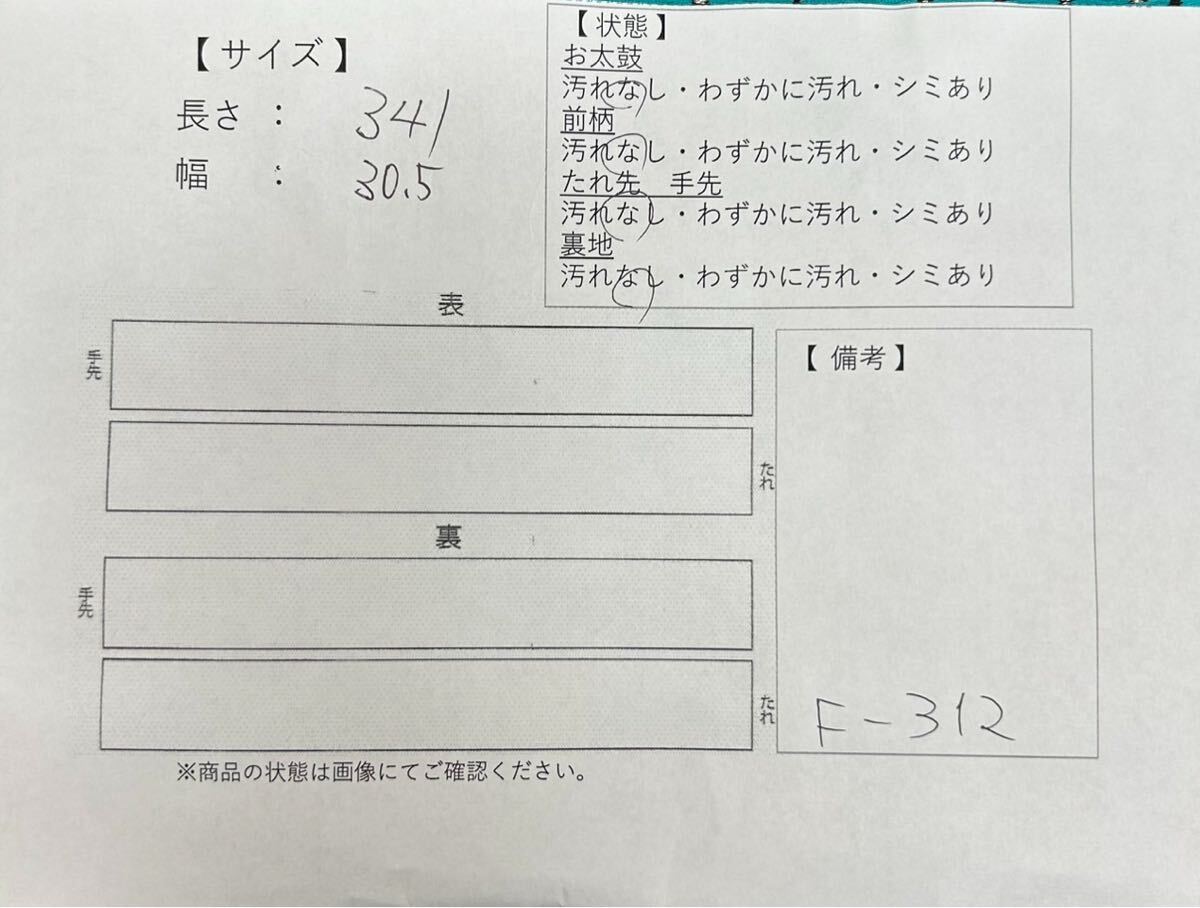 【サイズ】
長さ : 341
幅 : 30.5
【状態】
お太鼓
汚れなし・わずかに汚れ・シミあり
前柄
汚れなし・わずかに汚れ・シミあり
たれ先 手先
汚れなし・わずかに汚れ・シミあり
裏地
汚れなし・わずかに汚れ・シミあり
表
手先
たれ
裏
手先
たれ
【備考】
F-312
※商品の状態は画像にてご確認ください。